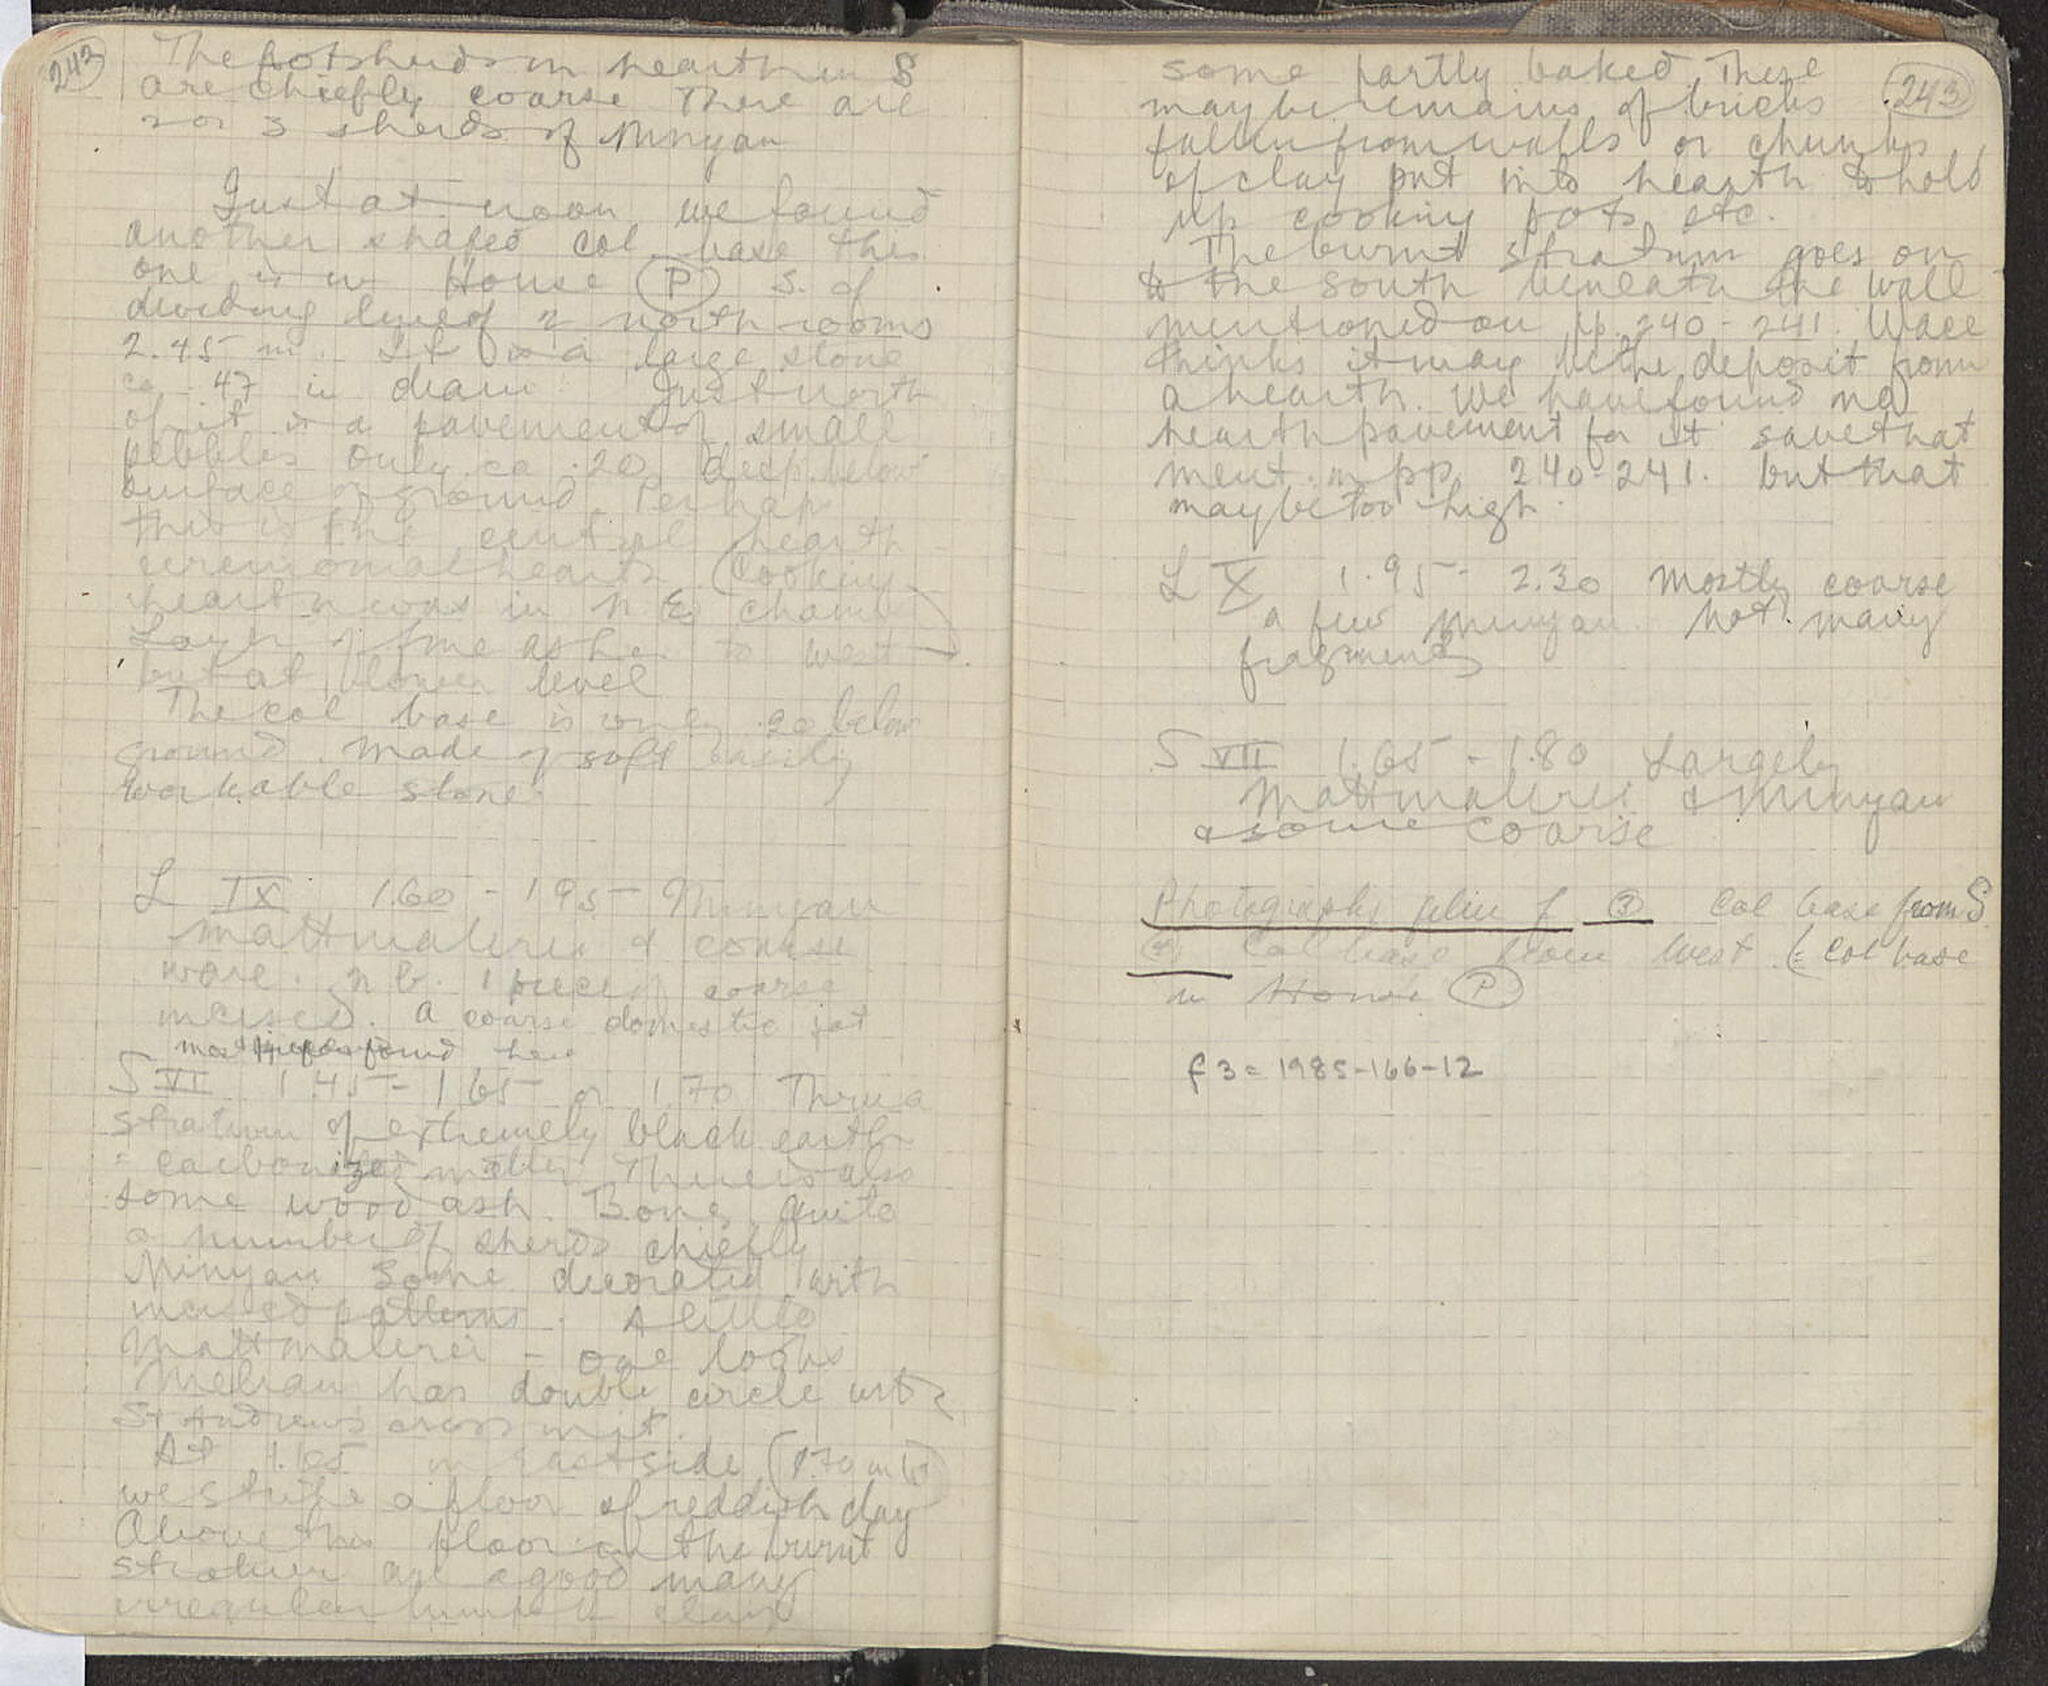 242
The potsherds in hearth in S
are chiefly coarse There are
2 or 3 sherds of Minyan
Just at noon we found
another shaped col. base this
one is in House (P) S. of
dividing line of 2 north rooms
2.45 m. It is a large stone
ca .47 in diam Just north
of it is a pavement of small
pebbles only ca .20 deep below
surface of ground. Perhaps
this is the central hearth
ceremonial hearth (Cooking
hearth was in N E chamb)
Layer of fine ashes to west
but at lower level
The col base is only .20 below
ground. Made of soft easily
workable stone.
L IX 1.60 - 1.95 - Minyan
Mattmalerei & coarse
ware. n b. 1 piece of coarse
incised. A coarse domestic pot
most pieces found here
S VI 1.45 - 1.65 or 1.70 Thru a
stratum of extremely black earth
= carbonized matter There is also
some wood ash. Bones quite
a number of sherds chiefly
Minyan some decorated with
incised patterns. A little
Mattmalerei - one looks
Melian has double circle with
St Andrews cross in it.
At 1.65 in East side (1.70 in W)
we strike a floor of reddish clay
Above this floor in the burnt
stratum are a good many
irregular lumps of clay
243
some partly baked. These
may be remains of bricks
fallen from walls or chunks
of clay put into hearth to hold
up cooking pots, etc.
The burnt stratum goes on
to the south beneath the wall
mentioned on p. 240 - 241. Wace
thinks it may be the deposit from
a hearth. We have found no
hearth pavement for it save that
ment. in pp 240-241. but that
may be too high.
L X 1.95 - 2.30 mostly coarse
a few Minyan. Not many
fragments
S VII 1.65 - 1.80 Largely
Mattmalerei & Minyan
& some coarse
Photographs film f (3) Col base from S
Col base from West (= Col base
in House (P)
f 3 = 1985-166-12